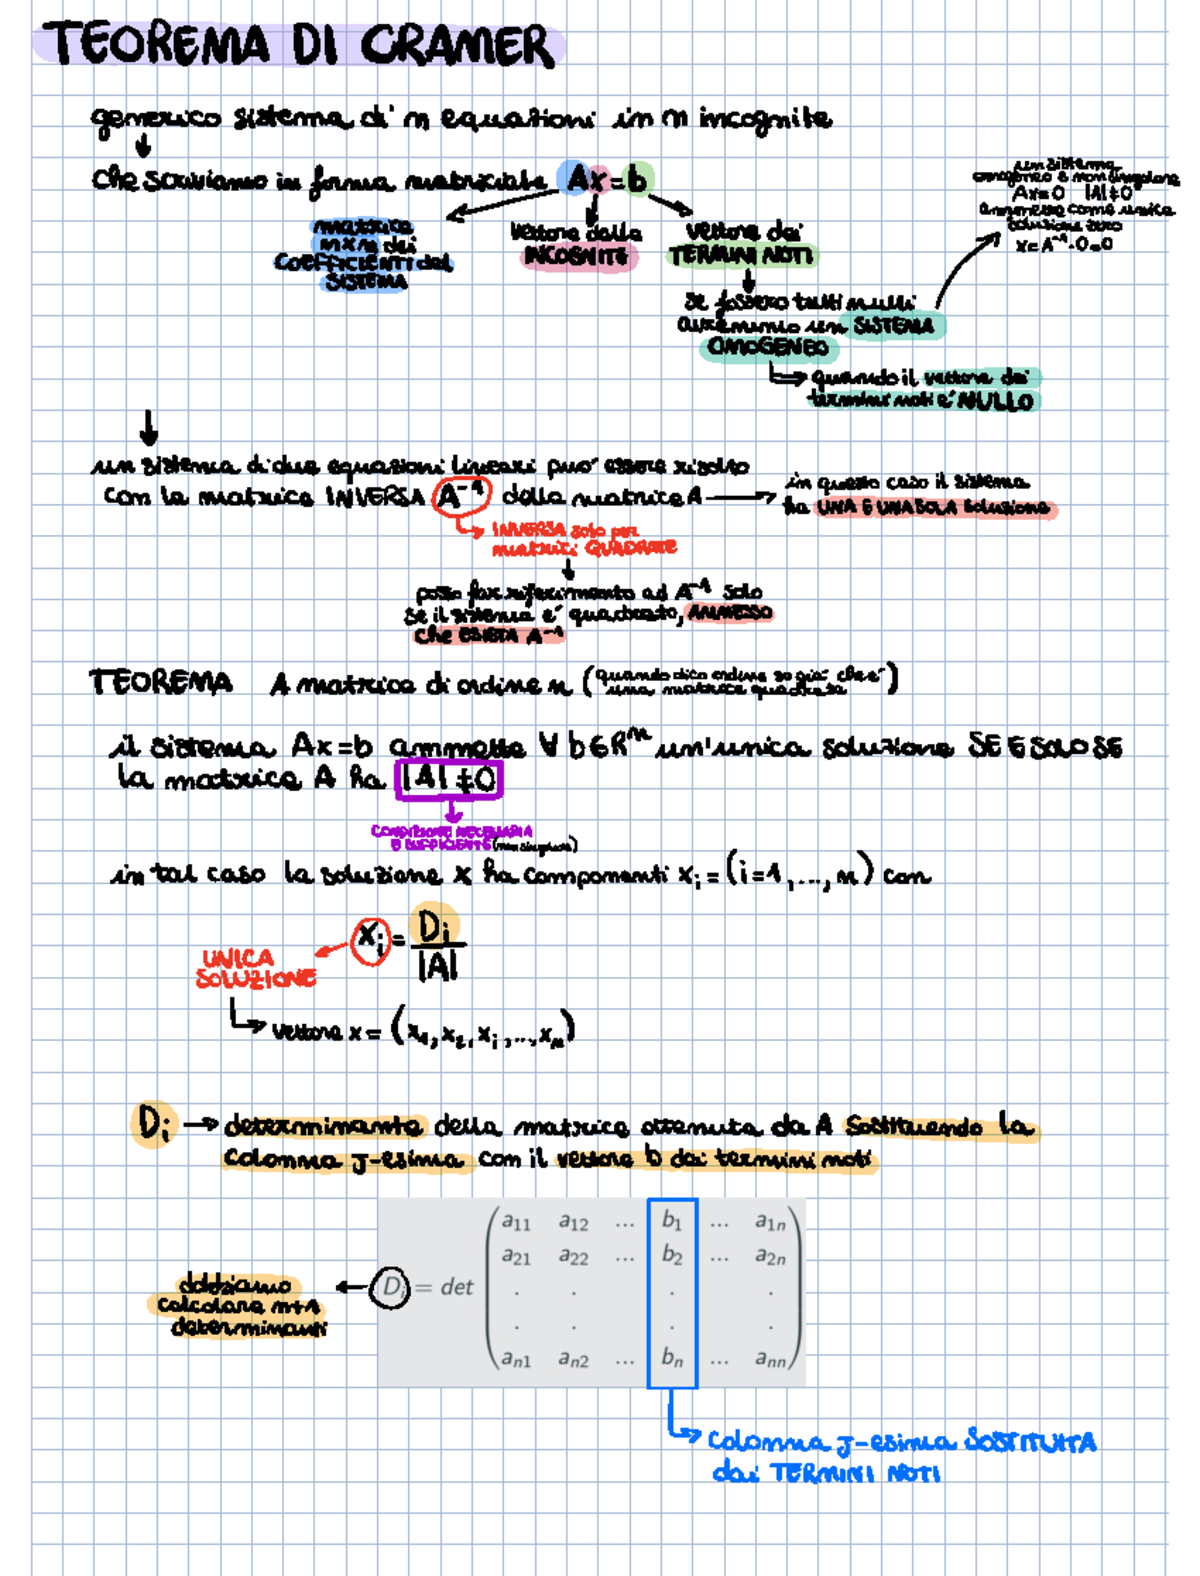 TEOREMA DI CRAMER
generico sistema di n equazioni in n incognite
che scriviamo in forma matriciale Ax=b
un sistema
omogeneo e non singolare
Ax=0 |A|≠0
ammette come unica
soluzione zero
x=A⁻¹·0=0
matrice
mxn dei
COEFFICIENTI del
SISTEMA
vettore delle
INCOGNITE
vettore dei
TERMINI NOTI
se fossero tutti nulli
avremmo un SISTEMA
OMOGENEO
quando il vettore dei
termini noti e' NULLO
un sistema di due equazioni lineari puo' essere risolto
con la matrice INVERSA A⁻¹ della matrice A
in questo caso il sistema
ha UNA E UNA SOLA soluzione
INVERSA solo per
matrici QUADRATE
posso far riferimento ad A⁻¹ solo
se il sistema e' quadrato, AMMESSO
che ESISTA A⁻¹
TEOREMA A matrice di ordine n (quando dico ordine so gia' che e'
una matrice quadrata)
il sistema Ax=b ammette ∀ b∈Rⁿ un'unica soluzione SE E SOLO SE
la matrice A ha |A|≠0
CONDIZIONE NECESSARIA
E SUFFICIENTE (non singolare)
in tal caso la soluzione x ha componenti xᵢ=(i=1,...,n) con
xᵢ = Dᵢ / |A|
UNICA
SOLUZIONE
vettore x = (x₁, x₂, xᵢ, ..., xₙ)
Dᵢ → determinante della matrice ottenuta da A sostituendo la
colonna J-esima con il vettore b dei termini noti
a₁₁ a₁₂ ... b₁ ... a₁ₙ
a₂₁ a₂₂ ... b₂ ... a₂ₙ
dobbiamo
calcolare n+1
determinanti
Dᵢ = det
. . . .
. . . .
aₙ₁ aₙ₂ ... bₙ ... aₙₙ
colonna J-esima SOSTITUITA
dai TERMINI NOTI